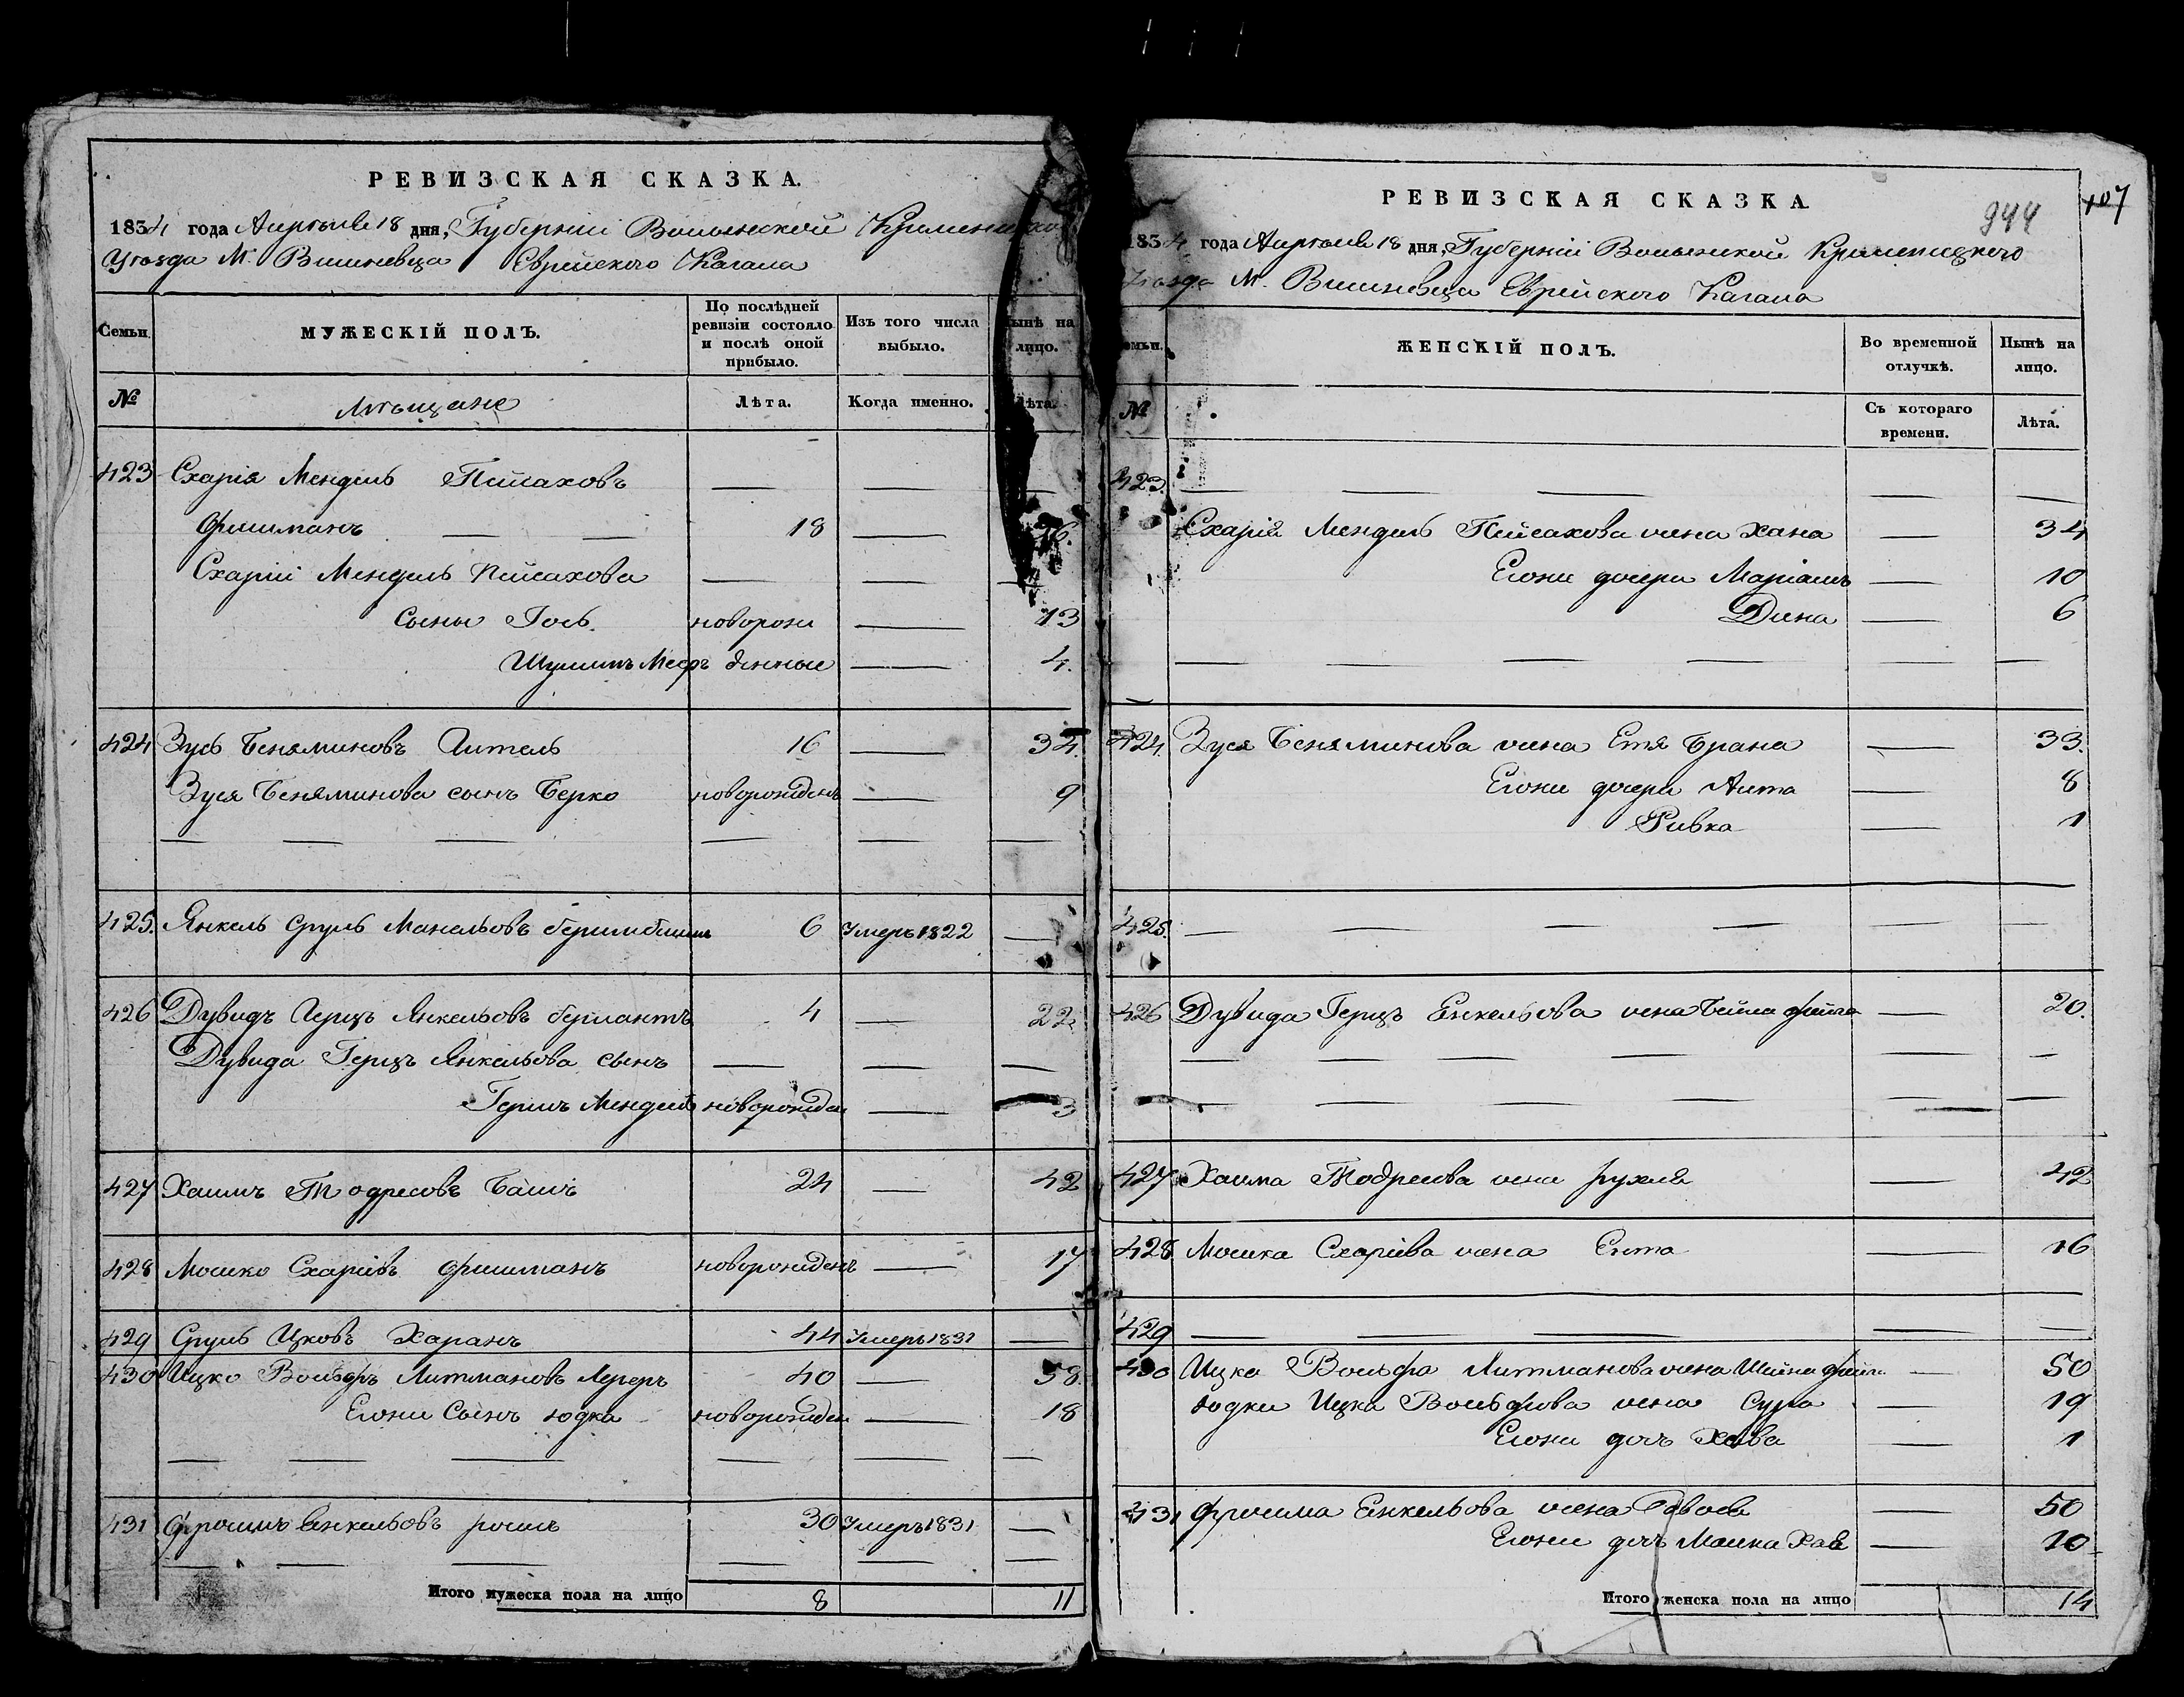 РЕВИЗСКАЯ СКАЗКА.
1834 года Апрѣля 18 дня, Губерніи Волынской Кременецко
Уѣзда М. Вишневца Еврейского Кагала
Семьи.
МУЖЕСКІЙ ПОЛЪ.
По послѣдней ревизіи состояло и послѣ оной прибыло.
Изъ того числа выбыло.
Нынѣ на лицо.
№
Мѣщане
Лѣта.
Когда именно.
Лѣта.
423 Схарія Мендель Пейсаховъ — — —
Фишманъ — — 18 — 36.
Схарій Мендель Пейсахова — — —
Сыны Іось новорож — 13
Шулимъ Мееръ денные — 4.
424 Зусь Беняминовъ 16 — 34.
Зуся Беняминова сынъ Берко новорожденъ — 9
— — — — — —
425. Янкель Сруль Манельовъ 6 Умеръ 1822 —
426 Дувидъ Герцъ Янкельовъ 4 — 22.
Дувида Герцъ Янкельова сынъ — — —
Гершъ Мендель новорожден — 3
427 Хаимъ Тодресовъ 24 — 42
428 Мошко Схаріевъ Фишманъ новорожденъ — 17
429 Сруль Ицковъ Харанъ 44 Умеръ 1831 —
430 Ицко Вольфъ Литмановъ Лереръ 40 — 58.
Егоже Сынъ Юдка новорожден — 18
— — — — — —
431 Фроимъ Енкельовъ 30 Умеръ 1831 —
— — — — — —
Итого мужеска пола на лицо 8 11
РЕВИЗСКАЯ СКАЗКА
944
107
1834 года Апрѣля 18 дня, Губерніи Волынской Кременецкого
Уѣзда М. Вишневца Еврейского Кагала
Семьи.
ЖЕНСКІЙ ПОЛЪ.
Во временной отлучкѣ.
Нынѣ на лицо.
№
Съ котораго времени.
Лѣта.
423. — — — — —
Схарія Мендель Пейсахова жена Хана — 34
Егоже дочери Маріамъ — 10
Дина — 6
— — — — — —
424. Зуся Беняминова жена Етя Брана — 33.
Егоже дочери — 8
Ривка — 1
425. — — — — — —
426 Дувида Герцъ Енкельова жена Бейла Фейга — 20.
— — — — — —
— — — — — —
427 Хаима Тодресова жена Рухля — 42
428 Мошка Схаріева жена Ента — 16
429 — — — — —
430 Ицка Вольфа Литманова жена Шейна Фейга — 50
Юдки Ицка Вольфова жена Сура — 19
Егоже дочь Хава — 1
431 Фроима Енкельова жена Двося — 50
Егоже дочь Малка Хая — 10
Итого женска пола на лицо 14